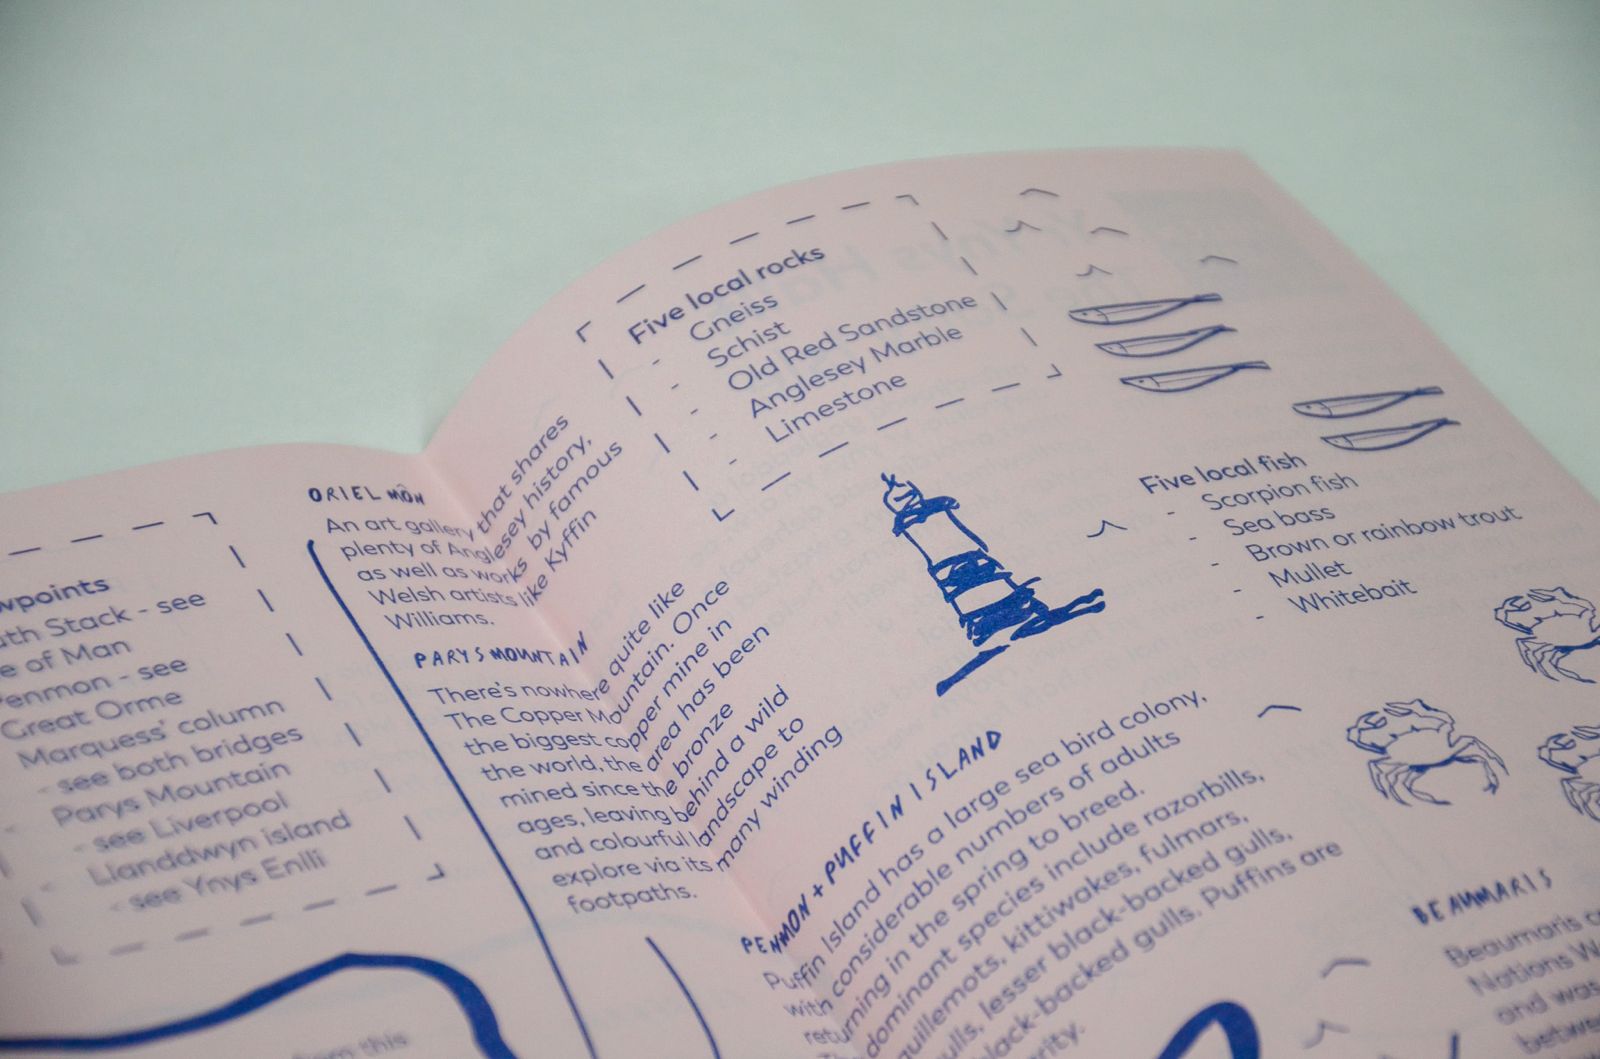 Five local rocks
- Gneiss
- Schist
- Old Red Sandstone
- Anglesey Marble
- Limestone
Five local fish
- Scorpion fish
- Sea bass
- Brown or rainbow trout
- Mullet
- Whitebait
ORIEL MÔN
An art gallery that shares
plenty of Anglesey history,
as well as works by famous
Welsh artists like Kyffin
Williams.
PARYS MOUNTAIN
There's nowhere quite like
The Copper Mountain. Once
the biggest copper mine in
the world, the area has been
mined since the bronze
ages, leaving behind a wild
and colourful landscape to
explore via its many winding
footpaths.
wpoints
uth Stack - see
e of Man
Penmon - see
Great Orme
Marquess' column
- see both bridges
- Parys Mountain
- see Liverpool
- Llanddwyn island
- see Ynys Enlli
PENMON + PUFFIN ISLAND
Puffin Island has a large sea bird colony,
with considerable numbers of adults
returning in the spring to breed.
dominant species include razorbills,
guillemots, kittiwakes, fulmars,
gulls, lesser black-backed gulls,
black-backed gulls. Puffins are
rity.
BEAUMARIS
Beaumaris
Nations
and was
betwe
from this